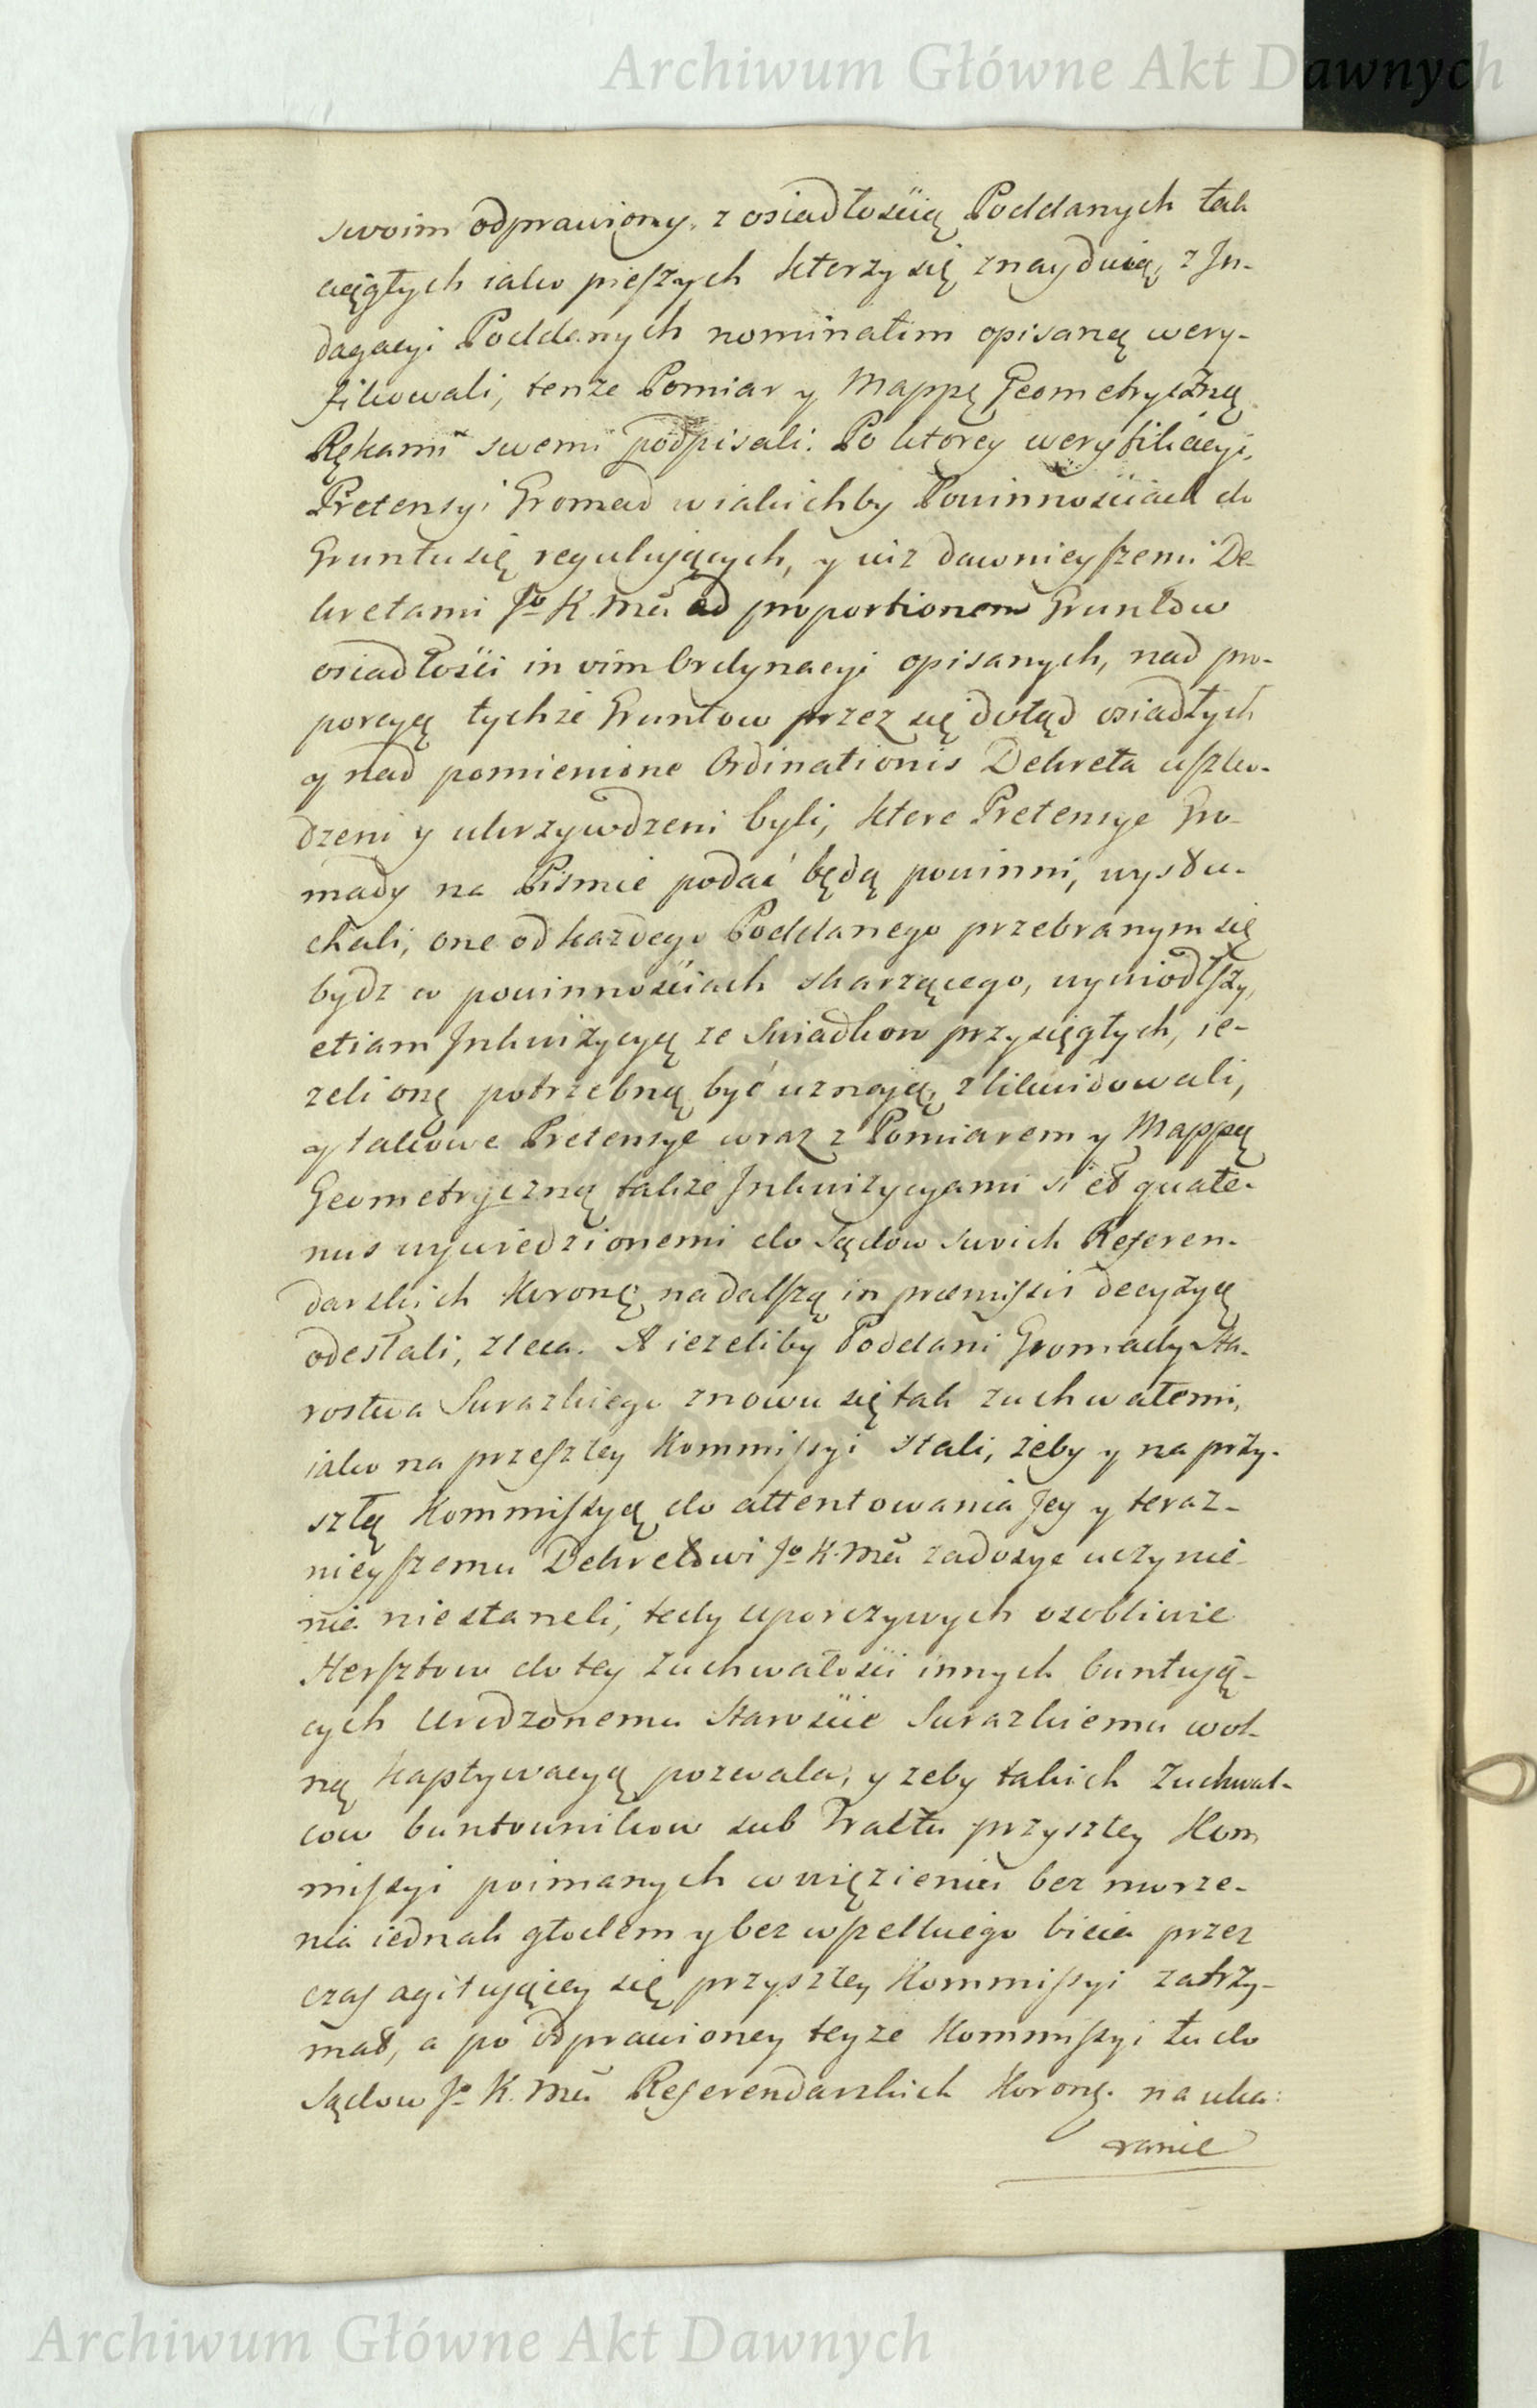 Archiwum Główne Akt Dawnych
swoim odprawiony, z osiadłością Poddanych tak
ciągłych iako pieszych ktorzy się znayduią, z In-
dagacyi Poddanych nominatim opisaną wery-
fikowali, tenze Pomiar y Mappę Geometryczną
Rękami swemi podpisali. Po ktorey weryfikacyi,
Pretensyi Gromad w iakichby Powinnościach do
Gruntu się regulujących, y iuz dawnieyszemi De-
kretami Jo K. Mci ad proportionem Gruntow
osiadłości in vim Ordynacyi opisanych, nad pro-
porcyą tychze Gruntow przez się dotąd osiadłych
y nad pomienione Ordinationis Dekreta uszko-
dzeni y ukrzywdzeni byli, ktore Pretensye Gro-
mady na Pismie podać będą powinni, wysłu-
chali, one od kazdego Poddanego przebranym się
bydz w powinnościach skarzącego, wywiodłszy,
etiam Inkwizycyą ze Swiadkow przysięgłych, ie-
zeli onę potrzebną być uznaią, zlikwidowali,
y takowe Pretensye wraz z Pomiarem y Mappą
Geometryczną takze Inkwizycyami si et quate-
nus wywiedzionemi do Sądow swoich Referen-
darskich Koroną na dalszą in præmissis decyzyą
odesłali, zleca. A iezeliby Poddani Gromady Sta-
rostwa Surazkiego znowu się tak zuchwałemi,
iako na przeszłey Kommissyi stali, żeby y na przy-
szłą Kommissyą do attentowania Jey y teraz-
nieyszemu Dekretowi Jo K. Mci zadosyc uczynie-
nia nie staneli, tedy uporczywych osobliwie
Hersztow do tey zuchwałości innych buntują-
cych Urodzonemu Staroście Surazkiemu wol-
ną kaptywacyą pozwala, y zeby takich Zuchwal-
cow buntownikow sub Tractu przyszłey Kom
missyi poimanych w więzieniu bez morze-
nia iednak głodem y bez wszelkiego bicia przez
czas agituiącey się przyszłey Kommissyi zatrzy-
mał, a po odprawioney teyze Kommissyi tu do
Sądow Jo K. Mci Referendarskich Koroną. na uka:
ranie
Archiwum Główne Akt Dawnych